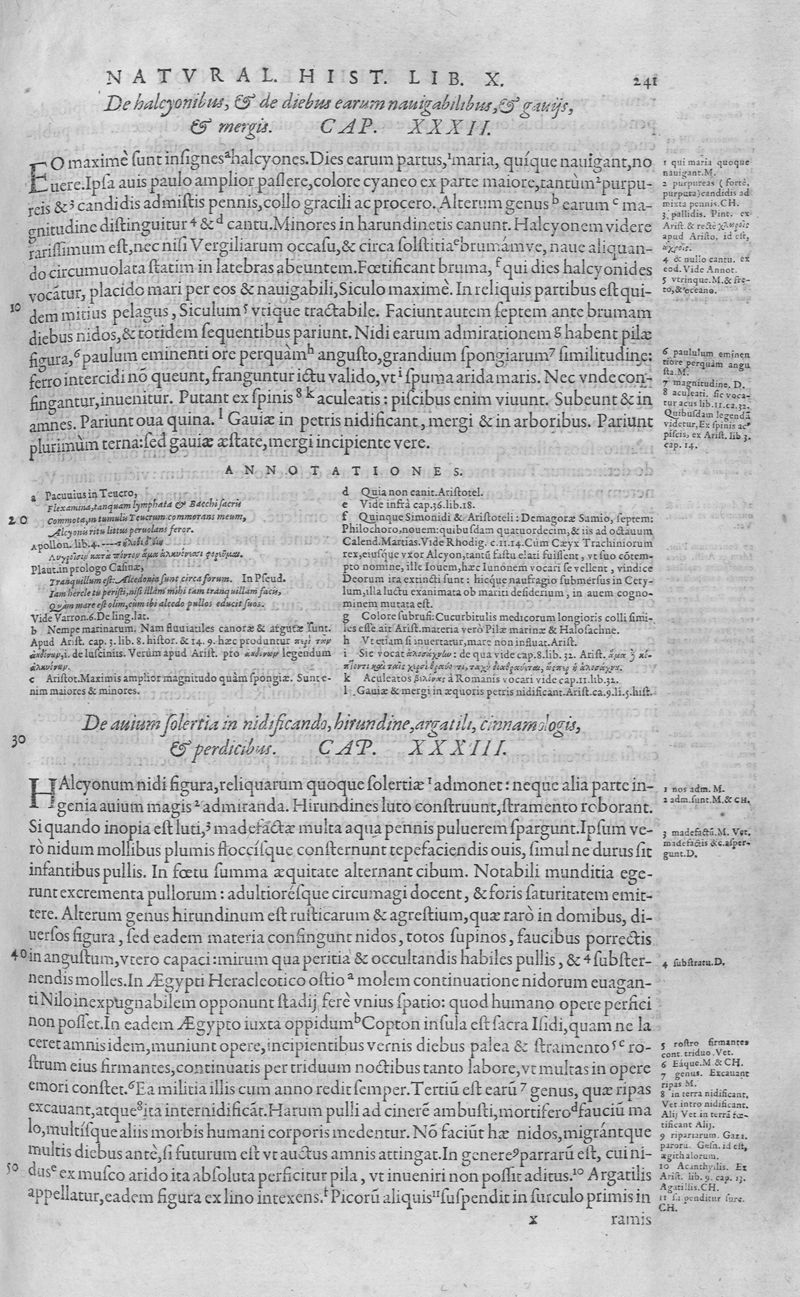 NATVRAL. HIST. LIB. X. 241
De halcyonibus, & de diebus earum nauigabilibus, & gauijs,
& mergis. CAP. XXXII.
EO maximè sunt insignes ᵃhalcyones. Dies earum partus, ¹maria, quíque nauigant, no
uere. Ipsa auis paulo amplior passere, colore cyaneo ex parte maiore, tantùm ²purpu-
reis & ³ candidis admistis pennis, collo gracili ac procero. Alterum genus ᵇ earum ᶜ ma-
gnitudine distinguitur ⁴ & ᵈ cantu. Minores in harundinetis canunt. Halcyonem videre
rarissimum est, nec nisi Vergiliarum occasu, & circa solstitia ᵉbrumámve, naue aliquan-
do circumuolata statim in latebras abeuntem. Fœtificant bruma, ᶠ qui dies halcyonides
vocātur, placido mari per eos & nauigabili, Siculo maximè. In reliquis partibus est qui-
10 dem mitius pelagus, Siculum ⁵ vtique tractabile. Faciunt autem septem ante brumam
diebus nidos, & totidem sequentibus pariunt. Nidi earum admirationem ᵍ habent pilæ
figura, ⁶paulum eminenti ore perquàm ʰ angusto, grandium spongiarum ⁷ similitudine:
ferro intercidi nō queunt, franguntur ictu valido, vt ⁱ spuma arida maris. Nec vnde con-
fingantur, inuenitur. Putant ex spinis ⁸ ᵏ aculeatis: piscibus enim viuunt. Subeunt & in
amnes. Pariunt oua quina. ˡ Gauiæ in petris nidificant, mergi & in arboribus. Pariunt
plurimùm terna: sed gauiæ æstate, mergi incipiente vere.
1 qui maria quoque
nauigant. M.
2 purpureas (fortè,
purpura) candidis ad
mixta pennis. CH.
3 pallidis. Pint. ex
Arist. & rectè
apud Aristo. id est,
4 & nullo cantu. ex
eod. Vide Annot.
5 vtrinque. M. & fre-
to, & oceano.
6 paululum eminen
tiore perquàm angu
sta. M.
7 magnitudine. D.
8 aculeati. sic voca-
tur acus lib. 11. ca. 32.
Quibusdam legendū
videtur, Ex spinis acᵘ
piscis, ex Arist. lib 3.
cap. 14.
ANNOTATIONES.
a Pacuuius in Teucro,
Flexamina, tanquam lymphata & Bacchi sacris
20 Commota, in tumulis Teucrum commorans meum,
Alcyonis ritu littus peruolans feror.
Apollon. lib. 4.
Plaut. in prologo Casinæ,
Tranquillum est: Alcedonia sunt circa forum. In Pseud.
Iam hercle tu peristi, nisi illam mihi tam tranquillam facis,
Quàm mare est olim, cum ibi alcedo pullos educit suos.
Vide Varron. 6. De ling. lat.
b Nempe marinarum. Nam fluuiatiles canoræ & argutæ sunt.
Apud Arist. cap. 3. lib. 8. histor. & 14. 9. hæc produntur περὶ τῶν
ἀηδόνων, i. de lusciniis. Verùm apud Arist. pro ἀηδόνων legendum
ἀλκυόνων.
c Aristot. Maximis amplior magnitudo quàm spongiæ. Sunt e-
nim maiores & minores.
d Quia non canit. Aristotel.
e Vide infrà cap. 36. lib. 18.
f Quinque Simonidi & Aristoteli: Demagoræ Samio, septem:
Philochoro, nouem: quibusdam quatuordecim, & iis ad octauum
Calend. Martias. Vide Rhodig. c. 11. 14. Cum Cæyx Trachiniorum
rex, eiusque vxor Alcyon, tantū fastu elati fuissent, vt suo cōtem-
pto nomine, ille Iouem, hæc Iunonem vocari se vellent, vindice
Deorum ira extincti sunt: hicque naufragio submersus in Cety-
lum, illa luctu exanimata ob mariti desiderium, in auem cogno-
minem mutata est.
g Colore subrufi: Cucurbitulis medicorum longioris colli simi-
les esse ait Arist. materia verò Pilæ marinæ & Halosachne.
h Vt etiam si inuertatur, mare non influat. Arist.
i Sic vocat ἁλοσάχνην: de qua vide cap. 8. lib. 32. Arist.
k Aculeatos à Romanis vocari vide cap. 11. lib. 32.
l Gauiæ & mergi in æquoris petris nidificant. Arist. ca. 9. li. 5. hist.
De auium solertia in nidificando, hirundine, argatili, cinnamologis,
30 & perdicibus. CAP. XXXIII.
HAlcyonum nidi figura, reliquarum quoque solertiæ ¹ admonet: neque alia parte in-
genia auium magis ² admiranda. Hirundines luto construunt, stramento roborant.
Si quando inopia est luti, ³ madefactæ multa aqua pennis puluerem spargunt. Ipsum ve-
rò nidum mollibus plumis floccísque consternunt tepefaciendis ouis, simul ne durus sit
infantibus pullis. In fœtu summa æquitate alternant cibum. Notabili munditia ege-
runt excrementa pullorum: adultiorésque circumagi docent, & foris saturitatem emit-
tere. Alterum genus hirundinum est rusticarum & agrestium, quæ rarò in domibus, di-
uersos figura, sed eadem materia confingunt nidos, totos supinos, faucibus porrectis
40 in angustum, vtero capaci: mirum qua peritia & occultandis habiles pullis, & ⁴ subster-
nendis molles. In Ægypti Heracleotico ostio ᵃ molem continuatione nidorum euagan-
ti Nilo inexpugnabilem opponunt stadij ferè vnius spatio: quod humano opere perfici
non posset. In eadem Ægypto iuxta oppidum ᵇCopton insula est sacra Isidi, quam ne la
ceret amnis idem, muniunt opere, incipientibus vernis diebus palea & stramento ⁵ ᶜ ro-
strum eius firmantes, continuatis per triduum noctibus tanto labore, vt multas in opere
emori constet. ⁶Ea militia illis cum anno redit semper. Tertiū est earū ⁷ genus, quæ ripas
excauant, atque ⁸ita internidificāt. Harum pulli ad cinerē ambusti, mortifero ᵈfauciū ma
lo, multísque aliis morbis humani corporis medentur. Nō faciūt hæ nidos, migrántque
multis diebus antè, si futurum est vt auctus amnis attingat. In genere ⁹parrarū est, cui ni-
50 dus ᵉ ex musco arido ita absoluta perficitur pila, vt inueniri non possit aditus. ¹⁰ Argatilis
appellatur, eadem figura ex lino intexens. ᶠ Picorū aliquis ¹¹ suspendit in surculo primis in
x ramis
1 nos adm. M.
2 adm. sunt. M. & CH.
3 madefactū. M. Vet.
madefactis &c. asper-
gunt. D.
4 substratu. D.
5 rostro firmantes
cont. triduo. Vet.
6 Eáque. M & CH.
7 genus. Excauant
ripas M.
8 in terra nidificant.
Vet intro nidificant.
Alij Vet in terrā fœ-
tificant Alij.
9 ripariarum. Gaza.
parorū. Gesn. id est,
ægithalorum.
10 Acanthyllis. Ex
Arist. lib. 9. cap. 13.
Agatillis. CH.
11 suspenditur surc.
CH.